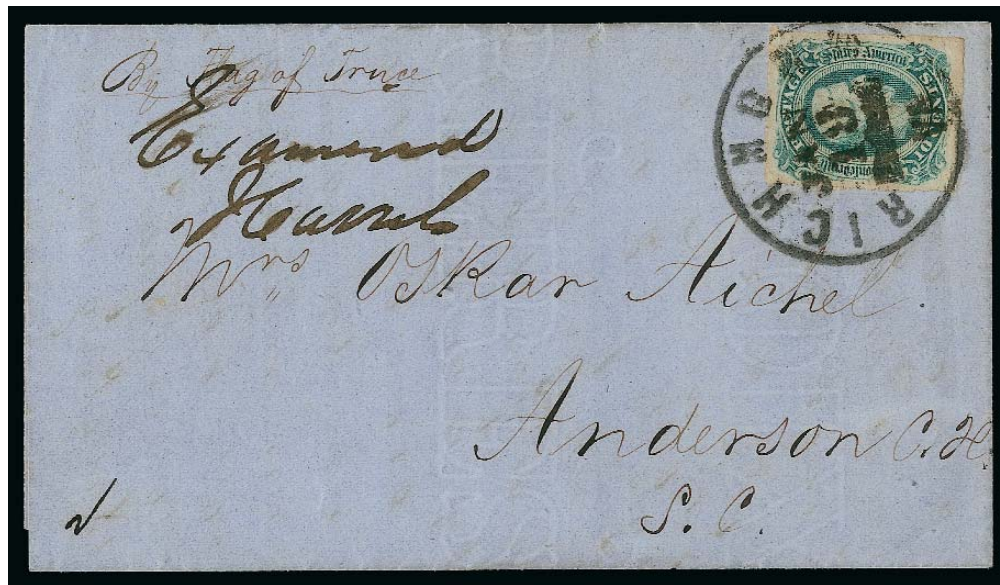 By Flag of Truce
Examend
Mrs Oskar Aichel.
Anderson C. H.
S. C.
RICHMOND
States America